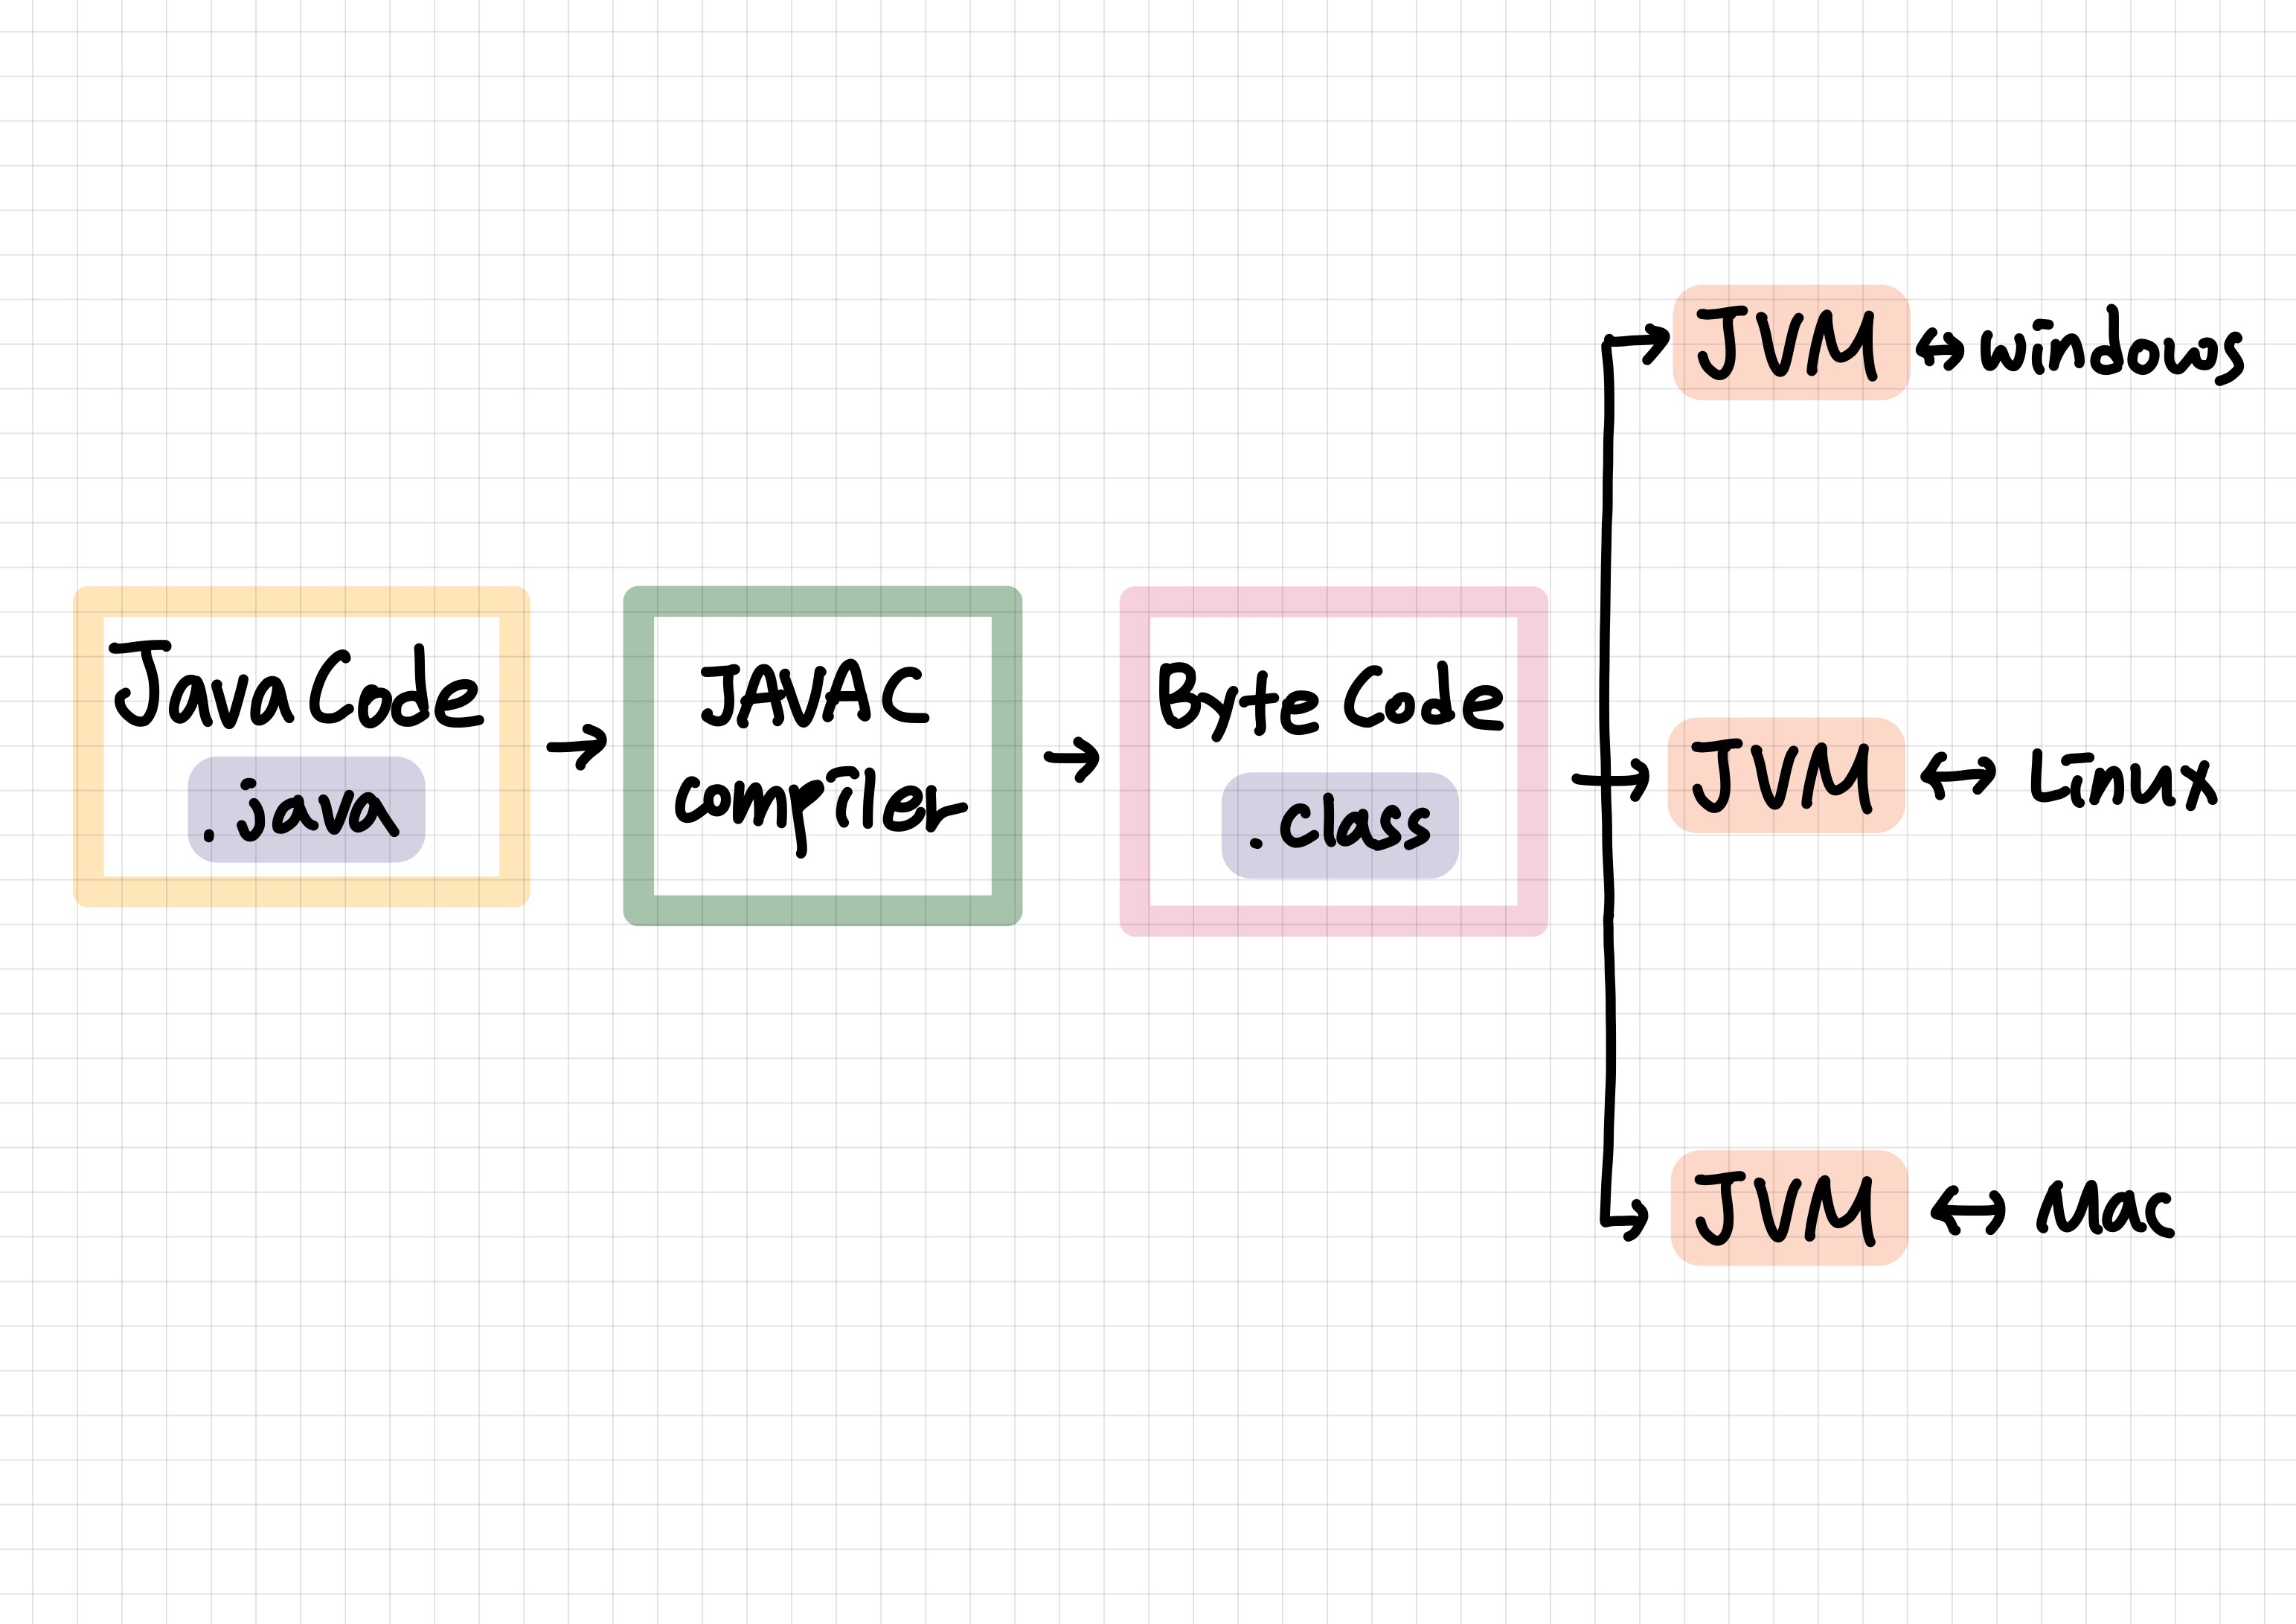 Java Code
.java
JAVAC
compiler
Byte Code
.class
JVM
windows
JVM
Linux
JVM
Mac